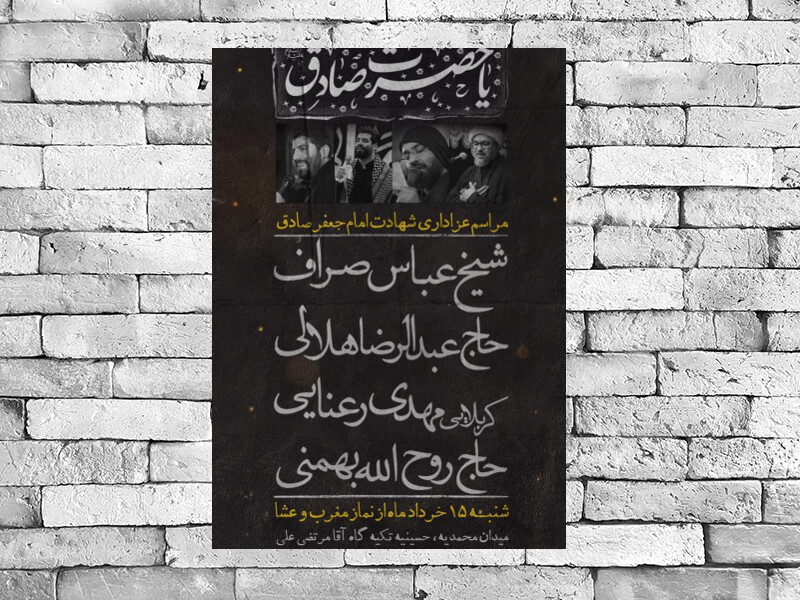 یا حضرت صادق
مراسم عزاداری شهادت امام جعفر صادق
شیخ عباس صراف
حاج عبدالرضا هلالی
کربلایی مهدی رعنایی
حاج روح الله بهمنی
شنبه ۱۵ خرداد ماه از نماز مغرب و عشا
میدان محمدیه، حسینیه تکیه گاه آقا مرتضی علی